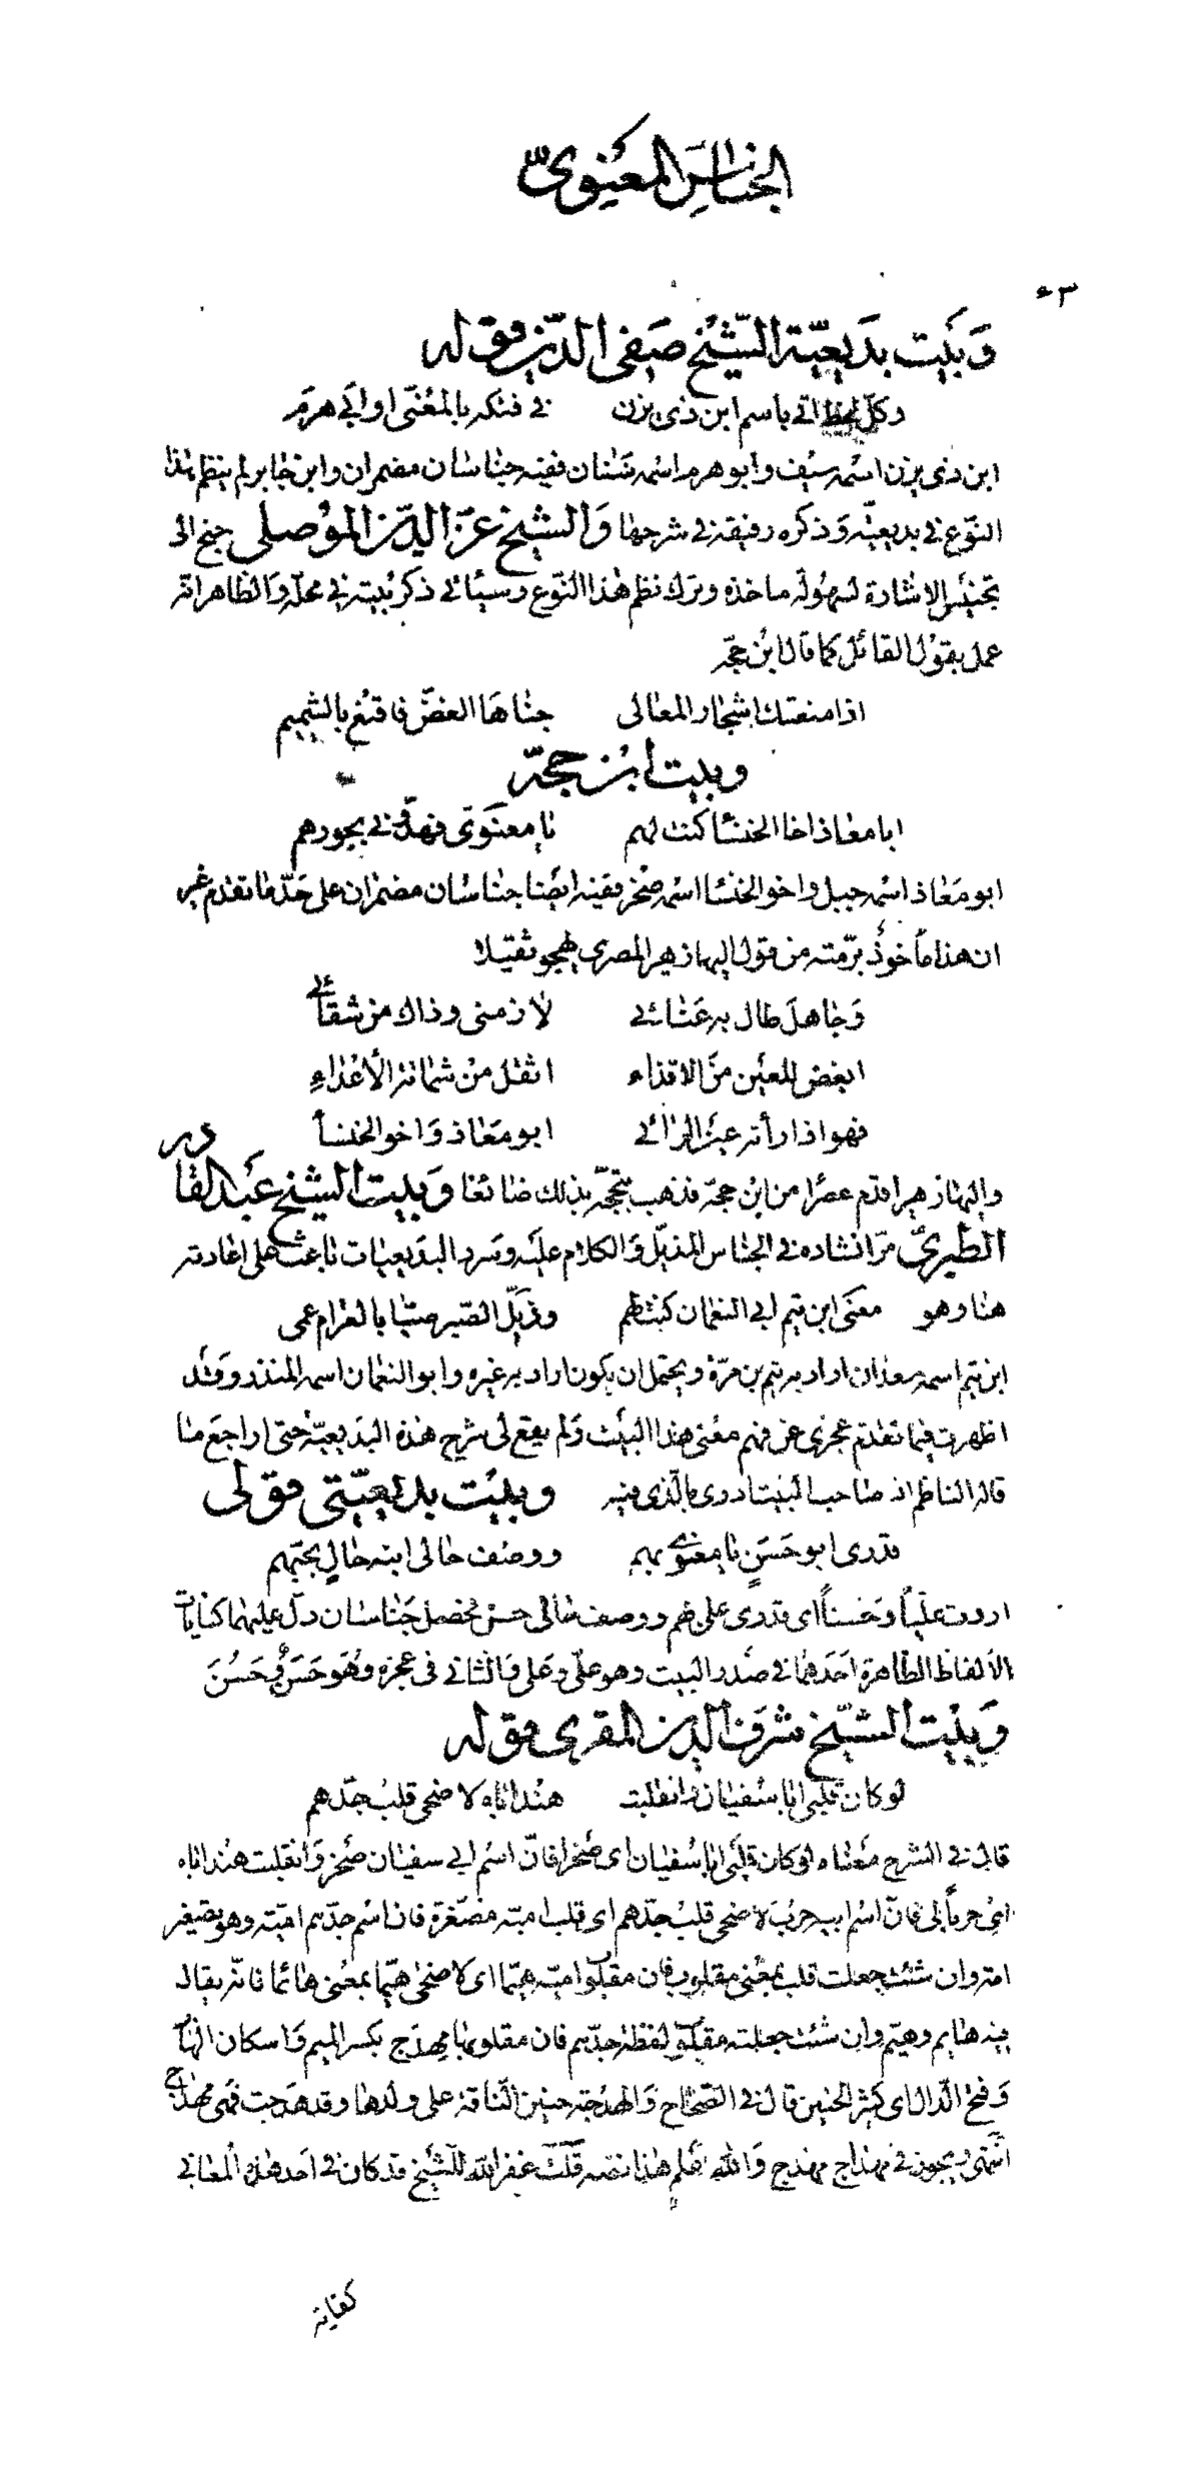 الجناس المعنوىّ
٤٣
وَبَيت بدَيعيّة الشّيْخ صَفى الدّين قوله
وكلّ لحظ اتى باسم ابن ذى يزن في فتكه بالمعْنّى او ابى هرمَ
ابن ذى يزن اسْمه سيْف وابو هرم اسْمه سَنٰان ففيه جنٰاسٰان مضمران وابن جٰابر لم ينظم هٰذا
النّوع فى بديعيّته وَذكره رفيقه فى شرحهٰا وَالشيخ عزّ الدّين المؤصلى جنح الى
تجنيْس الاشارة لسهُولة ماخذه وترك نظم هٰذا النّوع وسيأتى ذكر بيْته فى محلّه وَالظاهر انّه
عمل بقوْل القائل كما قال ابْن حجّه
اذا منعتك اشجٰار المعٰالى جنٰاهَا الغضّ فاقنعْ بالشميم
وبيت ابْن حجّة
ابا معٰاذ اخا الخنسٰا كنت لهم يٰا معنَوىّ فهدّونى بجورهم
ابو مَعٰاذ اسْمه جبل واخو الخنْسٰا اسْمه صَخْر ففيْه ايضًا جنٰاسٰان مضمرٰان على حَدّ مٰا تقدم غير
ان هذا مأخوذٌ برّمته من قول البهاز هير المصرى يهجو ثقيلا
وَجٰاهلَ طال به عَنٰائى لازمنى وذاك من شقآئى
ابغض للعيْن منَ الاقذاء اثقل منْ شمٰاتة الأعْدٰاءِ
فهو اذا رأته عيْن الرٰائى ابو معٰاذ وَاخو الخنسأ
والبهٰاز هير اقدم عصْرا من ابْن حجّة فذهب تبجّحه بذلك ضٰائعٰا وَبيت الشيخ عبْد القٰادر
الطّبرىّ مرّ انشاده فى الجنٰاس المذيّل وَالكلام عليْه وسَرد البدَيعيٰات بٰاعث على اعٰادته
هنٰا وهو معنَى ابن تيم ابى النعمٰان كنت لهم وذيّل الصّبر صبّا بالغرٰام عمى
ابن تيم اسمه سعد ان اراد به تيم بن مرّة ويحتمل ان يكون اراد به غيره وابو النعمٰان اسمه المنذر وقد
اظهرت فيمٰا تقدّم عجزى عن فهم معْنى هذا البيْت وَلم يقع لى شرح هٰذه البدَيعيّة حتى اراجع مٰا
قاله الناظم اذ صٰاحب البيْت ادرى بالّذى فيه وبيْت بديعيّتى قولى
قدرى ابو حَسَنٍ يٰا معْنوىّ بهم ووصْف حٰالى ابنه حٰالٍ بحبّهم
اردت عليًّا وَحسَنًا اى قدرى علىّ بهم ووصف حٰالى حسن فحصل جنٰاسٰان دلّ عليهمٰا كنايات
الالفاظ الظّاهرة احَدهمٰا فى صدْر البيت وهو علىّ وعَلى وَالثانى فى عجزه وهُو حَسَنٌ وحَسُنَ
وَبيْت الشيّخ شرَف الدين المقرى قوله
لو كان قلبى ابٰا سُفيٰان وانقلبت هنْد ابٰاه لاضحى قلبُ جدّهم
قال فى الشرح معْنٰاه لو كان قلْبَى ابٰا سُفيٰان اى صَخْرا فانّ اسْم ابى سفيٰان صَخْر وَانقلبت هنْد اباه
اىْ حربًا لى فانّ اسْم ابيه حربُ لاضحى قلبُ جدّهم اى قلب اميّه مصَغّرة فان اسْم جدّهم اميّه وهو تصغير
امة وان شئت جعلت قلب بمعْنى مقلوب فان مقلوب اميّه هيّما اى لاضحٰى هيّما بمعْنى هٰائما فانّه يقال
فيه هٰايم وهيّم وان شئت جعلته مقلوب لفظة جدّهم فان مقلوبهٰا مِهدَج بكسر الميم وَاسكان الهآ
وَفتح الّدال اى كثير الحنين قال فى الصّحٰاح وَالهَدجة حنين النّاقة على ولدهٰا وقد هَدجت فهى مهدٰاج
انتهى ويجوز فى مهدٰاج مهدج وَاللّه اَعلم هٰذا نصّه قلت غفر اللّه للشيْخ قد كان فى احَد هٰذه المعٰانى
كفاية